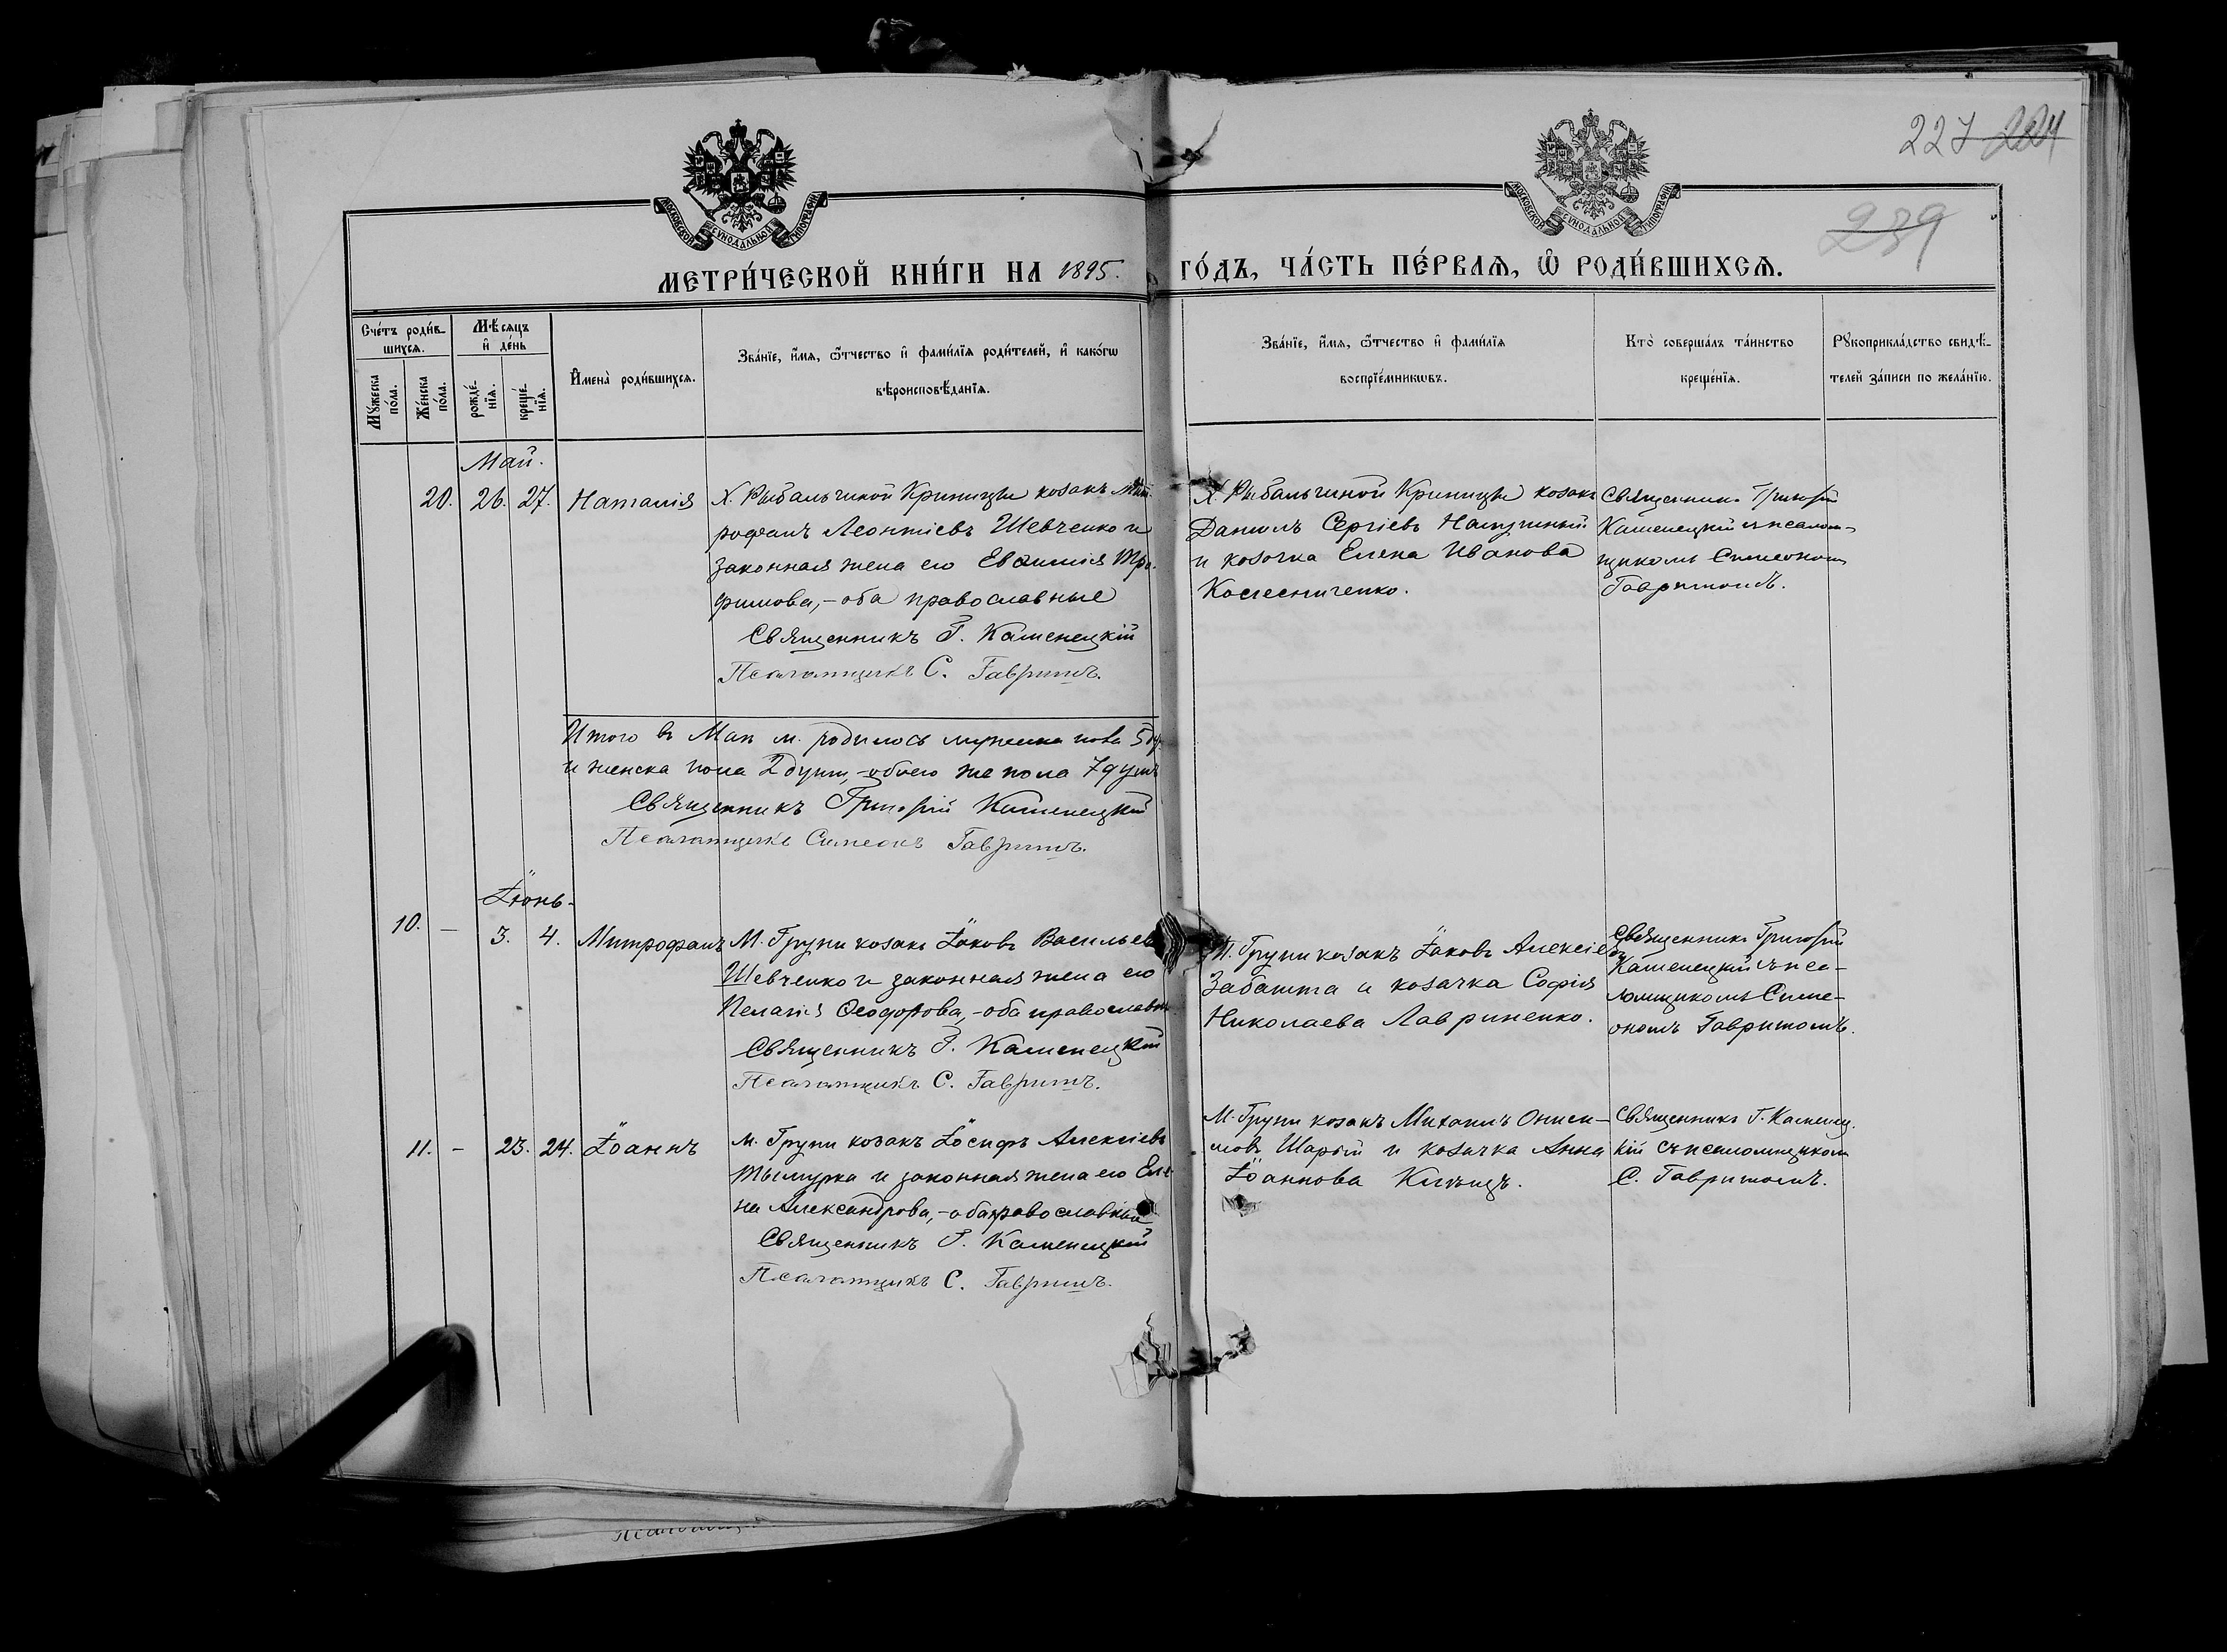 227 224
239
МОСКОВСКОЙ СѴНОДАЛЬНОЙ ТИПОГРАФІИ
МОСКОВСКОЙ СѴНОДАЛЬНОЙ ТИПОГРАФІИ
МЕТРИ́ЧЕСКОЙ КНИ́ГИ НА 1895. ГО́ДЪ, ЧА́СТЬ ПЕ́РВАѦ, Ѡ҆ РОДИ́ВШИХСѦ.
Сче́тъ роди́в-
шихсѧ.
Мꙋ́жеска по́ла.
Же́нска по́ла.
Мѣ́сѧцъ
и҆ де́нь
рожде́-
нїѧ.
креще́-
нїѧ.
И҆мена̀ роди́вшихсѧ.
Зва́нїе, и҆́мѧ, ѻ҆́тчество и҆ фами́лїѧ роди́телей, и҆ како́гѡ
вѣроисповѣ́данїѧ.
Зва́нїе, и҆́мѧ, ѻ҆́тчество и҆ фами́лїѧ
воспрїе́мникѡвъ.
Кто̀ соверша́лъ та́инство
креще́нїѧ.
Рꙋкоприкла́дство свидѣ́-
телей за́писи по жела́нїю.
Май.
20. 26. 27. Наталія
Х. Рыбальчиной Криницы козакъ Мит-
рофанъ Леонтіевъ Шевченко и
законная жена его Евѳимія Тро-
фимова,-оба православные
Священникъ Г. Каменецкій
Псаломщикъ С. Гавришъ.
Х. Рыбальчиной Криницы козакъ
Даніилъ Сергіевъ
и козачка Елена Иванова
Колесниченко.
Священникъ Григорій
Каменецкій съ псалом-
щикомъ Симеономъ
Гавришомъ.
Итого въ Маѣ м. родилось мужеска пола 5 ду
и женска пола 2 души,-обоего же пола 7 душъ
Священникъ Григорій Каменецкій
Псаломщикъ Симеонъ Гавришъ.
Іюнь.
10. - 3. 4. Митрофанъ
М. Груни козакъ Іаковъ Васильевъ
Шевченко и законная жена его
Пелагія Ѳеодорова,-оба православн
Священникъ Г. Каменецкій
Псаломщикъ С. Гавришъ.
М. Груни козакъ Іаковъ Алексіевъ
Забашта и козачка Софія
Николаева Лавриненко.
Священникъ Григорій
Каменецкій съ пса-
ломщикомъ Симе-
ономъ Гавришомъ.
11. - 23. 24. Іоаннъ
М. Груни козакъ Іосифъ Алексіевъ
Тымурка и законная жена его Еле
на Александрова,-оба православные
Священникъ Г. Каменецкій
Псаломщикъ С. Гавришъ.
М. Груни козакъ Михаилъ Ониси-
мовъ Шарый и козачка Анна
Іоаннова
Священникъ Г. Каменец-
кій съ псаломщикомъ
С. Гавришомъ.